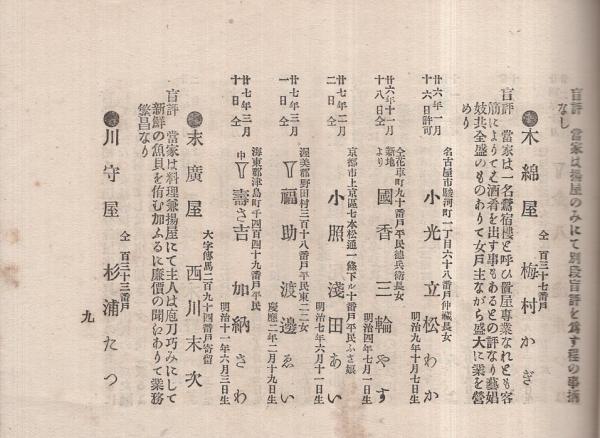 盲評 當家は揚屋のみにて別段盲評を爲す程の事柄
なし
木綿屋 仝百三十七番戸 梅村かぎ
盲評 當家は一名鶯宿樓と呼び置屋專業なれとも客
筋によりては酒肴を出す事もあるとの評なり藝娼
妓共全盛のものありて女戸主ながら盛大に業を營
めり
廿六年一月
十六日許可
名古屋市駿河町一丁目六十八番戸仲藏長女
小光 立松わか
明治九年十月七日生
廿六年十一月
十八日仝
新地より
仝花車町九十番戸平民德兵衛長女
國香 三輪やす
明治四年七月一日生
廿七年二月
二日仝
京都市上京區七本松通一條下ル十番戸平民ふさ娘
小照 淺田あい
明治七年六月十一日生
廿七年三月
一日仝
渥美郡野田村三百十八番戸平民東一二女
福助 渡邊ゑい
慶應二年二月十九日生
廿七年三月
十日仝
海東郡津島町千四百四十九番戸平民
申 壽吉 加納さわ
明治十一年六月三日生
末廣屋 大字傳馬二百九十四番戸寄留 西川末次
盲評 當家は料理兼揚屋にて主人は庖刀巧みにして
新鮮の魚貝を侑む加ふるに廉價の聞えありて業務
繁昌なり
川守屋 仝百三十三番戸 杉浦たつ
九